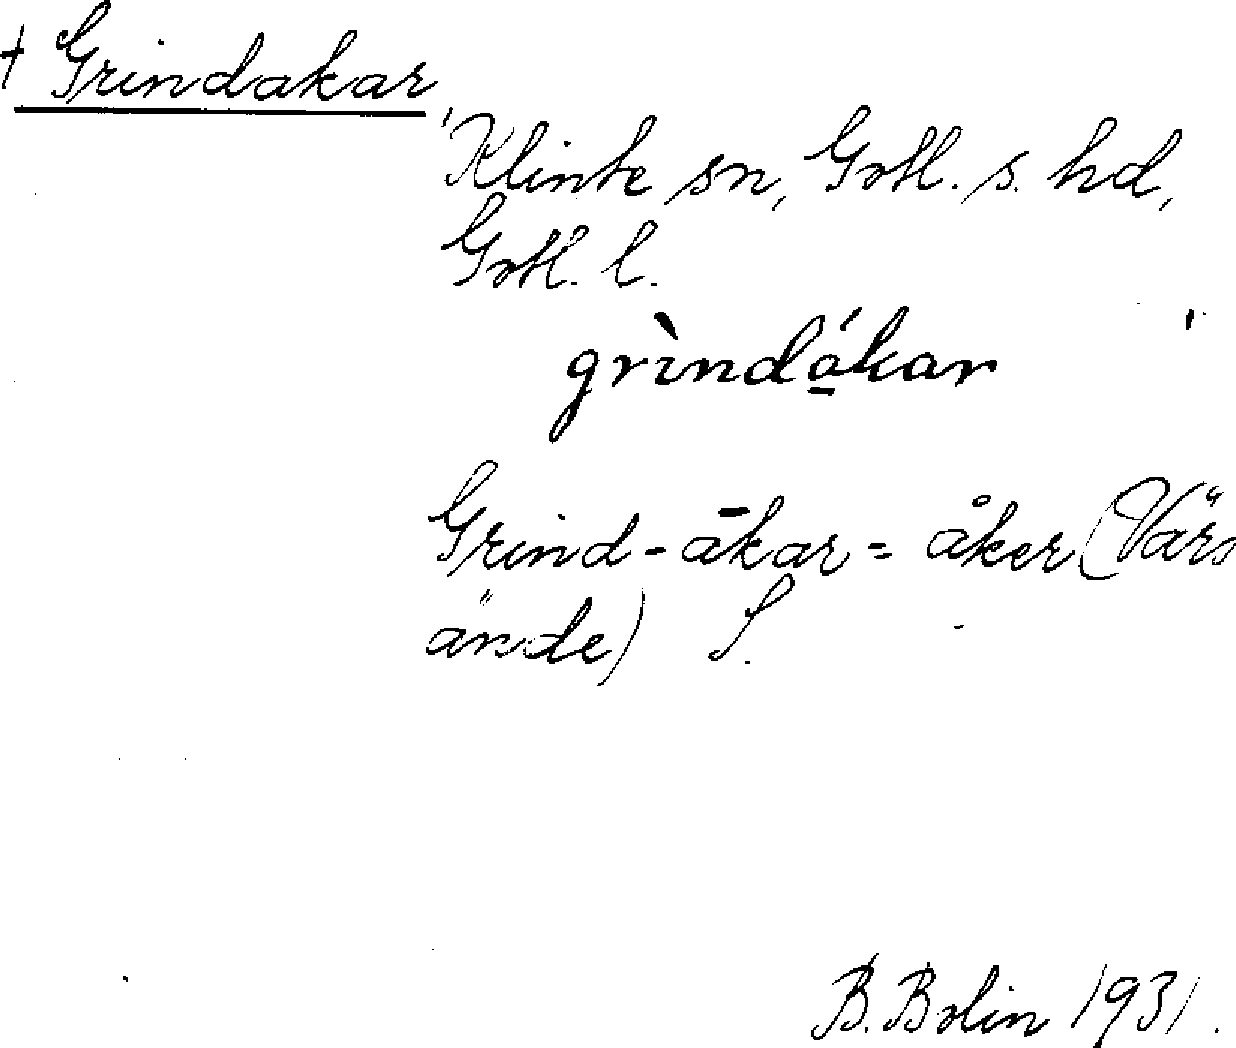 † Grindakar
Klinte sn, Gotl. s. hd,
Gotl. l.
grìndá̱kar
Grind-ākar = åker (Värs
ände) S.
B. Bolin 1931.